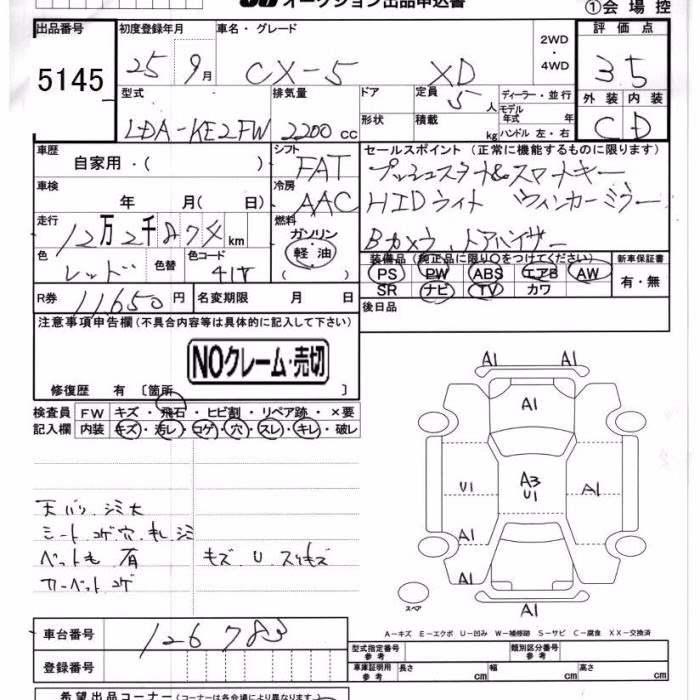 オークション出品申込書
①会場控
出品番号 初度登録年月 車名・グレード 2WD・4WD 評価点
5145 25 9月 CX-5 XD 3.5
型式 排気量 ドア 定員 5人 ディーラー・並行 外装 内装
LDA-KE2FW 2200cc 形状 積載 kg モデル年式 年 C D
ハンドル 左・右
車歴 自家用・( ) シフト FAT セールスポイント (正常に機能するものに限ります)
プッシュスタート&スマートキー
車検 年 月( 日) 冷房 AAC HIDライト ウィンカーミラー
走行 12万2千874km 燃料 ガソリン・(軽油) Bカメラ
色 レッド 色替 色コード 41V
装備品(純正品に限り○をつけてください) 新車保証書
PS PW ABS エアB AW 有・無
SR ナビ TV カワ
R券 11,650円 名変期限 月 日 後日品
注意事項申告欄(不具合内容等は具体的に記入して下さい)
NOクレーム・売切
修復歴 有 〔箇所 〕
検査員 FW キズ・飛石・ヒビ割・リペア跡・×要
記入欄 内装 キズ・汚レ・コゲ・穴・スレ・キレ・破レ
シミ大
シート コゲ 穴 キレ シミ
ペット毛 有 キズ U スリキズ
カーペット コゲ
A1 A1
A1
U1 A3 U1 A1
A1
A1
A1
スペア
A-キズ E-エクボ U-凹み W-補修跡 S-サビ C-腐食 XX-交換済
車台番号 126783
登録番号
型式指定番号 参考 類別区分番号 参考
車庫証明用 参考 長さ cm 幅 cm 高さ cm
希望出品コーナー (コーナーは各会場により異なります